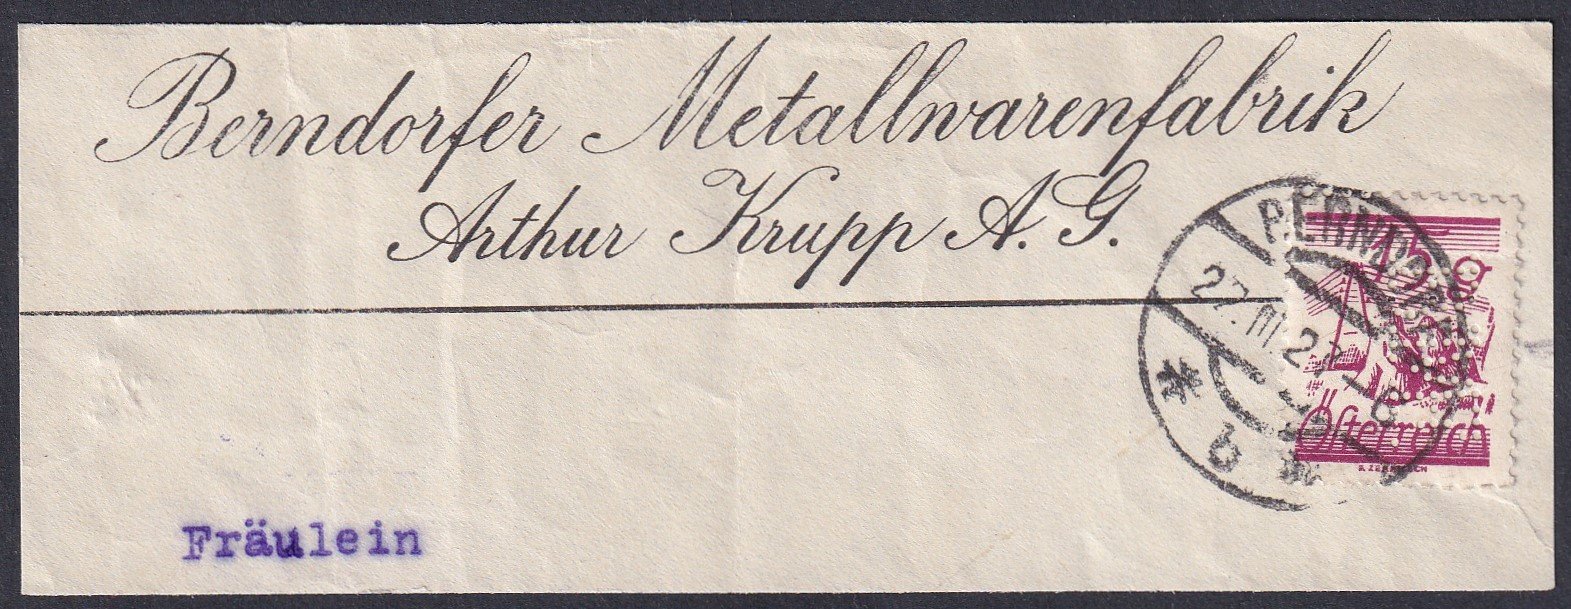 Berndorfer Metallwarenfabrik
Arthur Krupp A. G.
BERNDORF
27. III. 27
* b *
15 g
Österreich
Fräulein